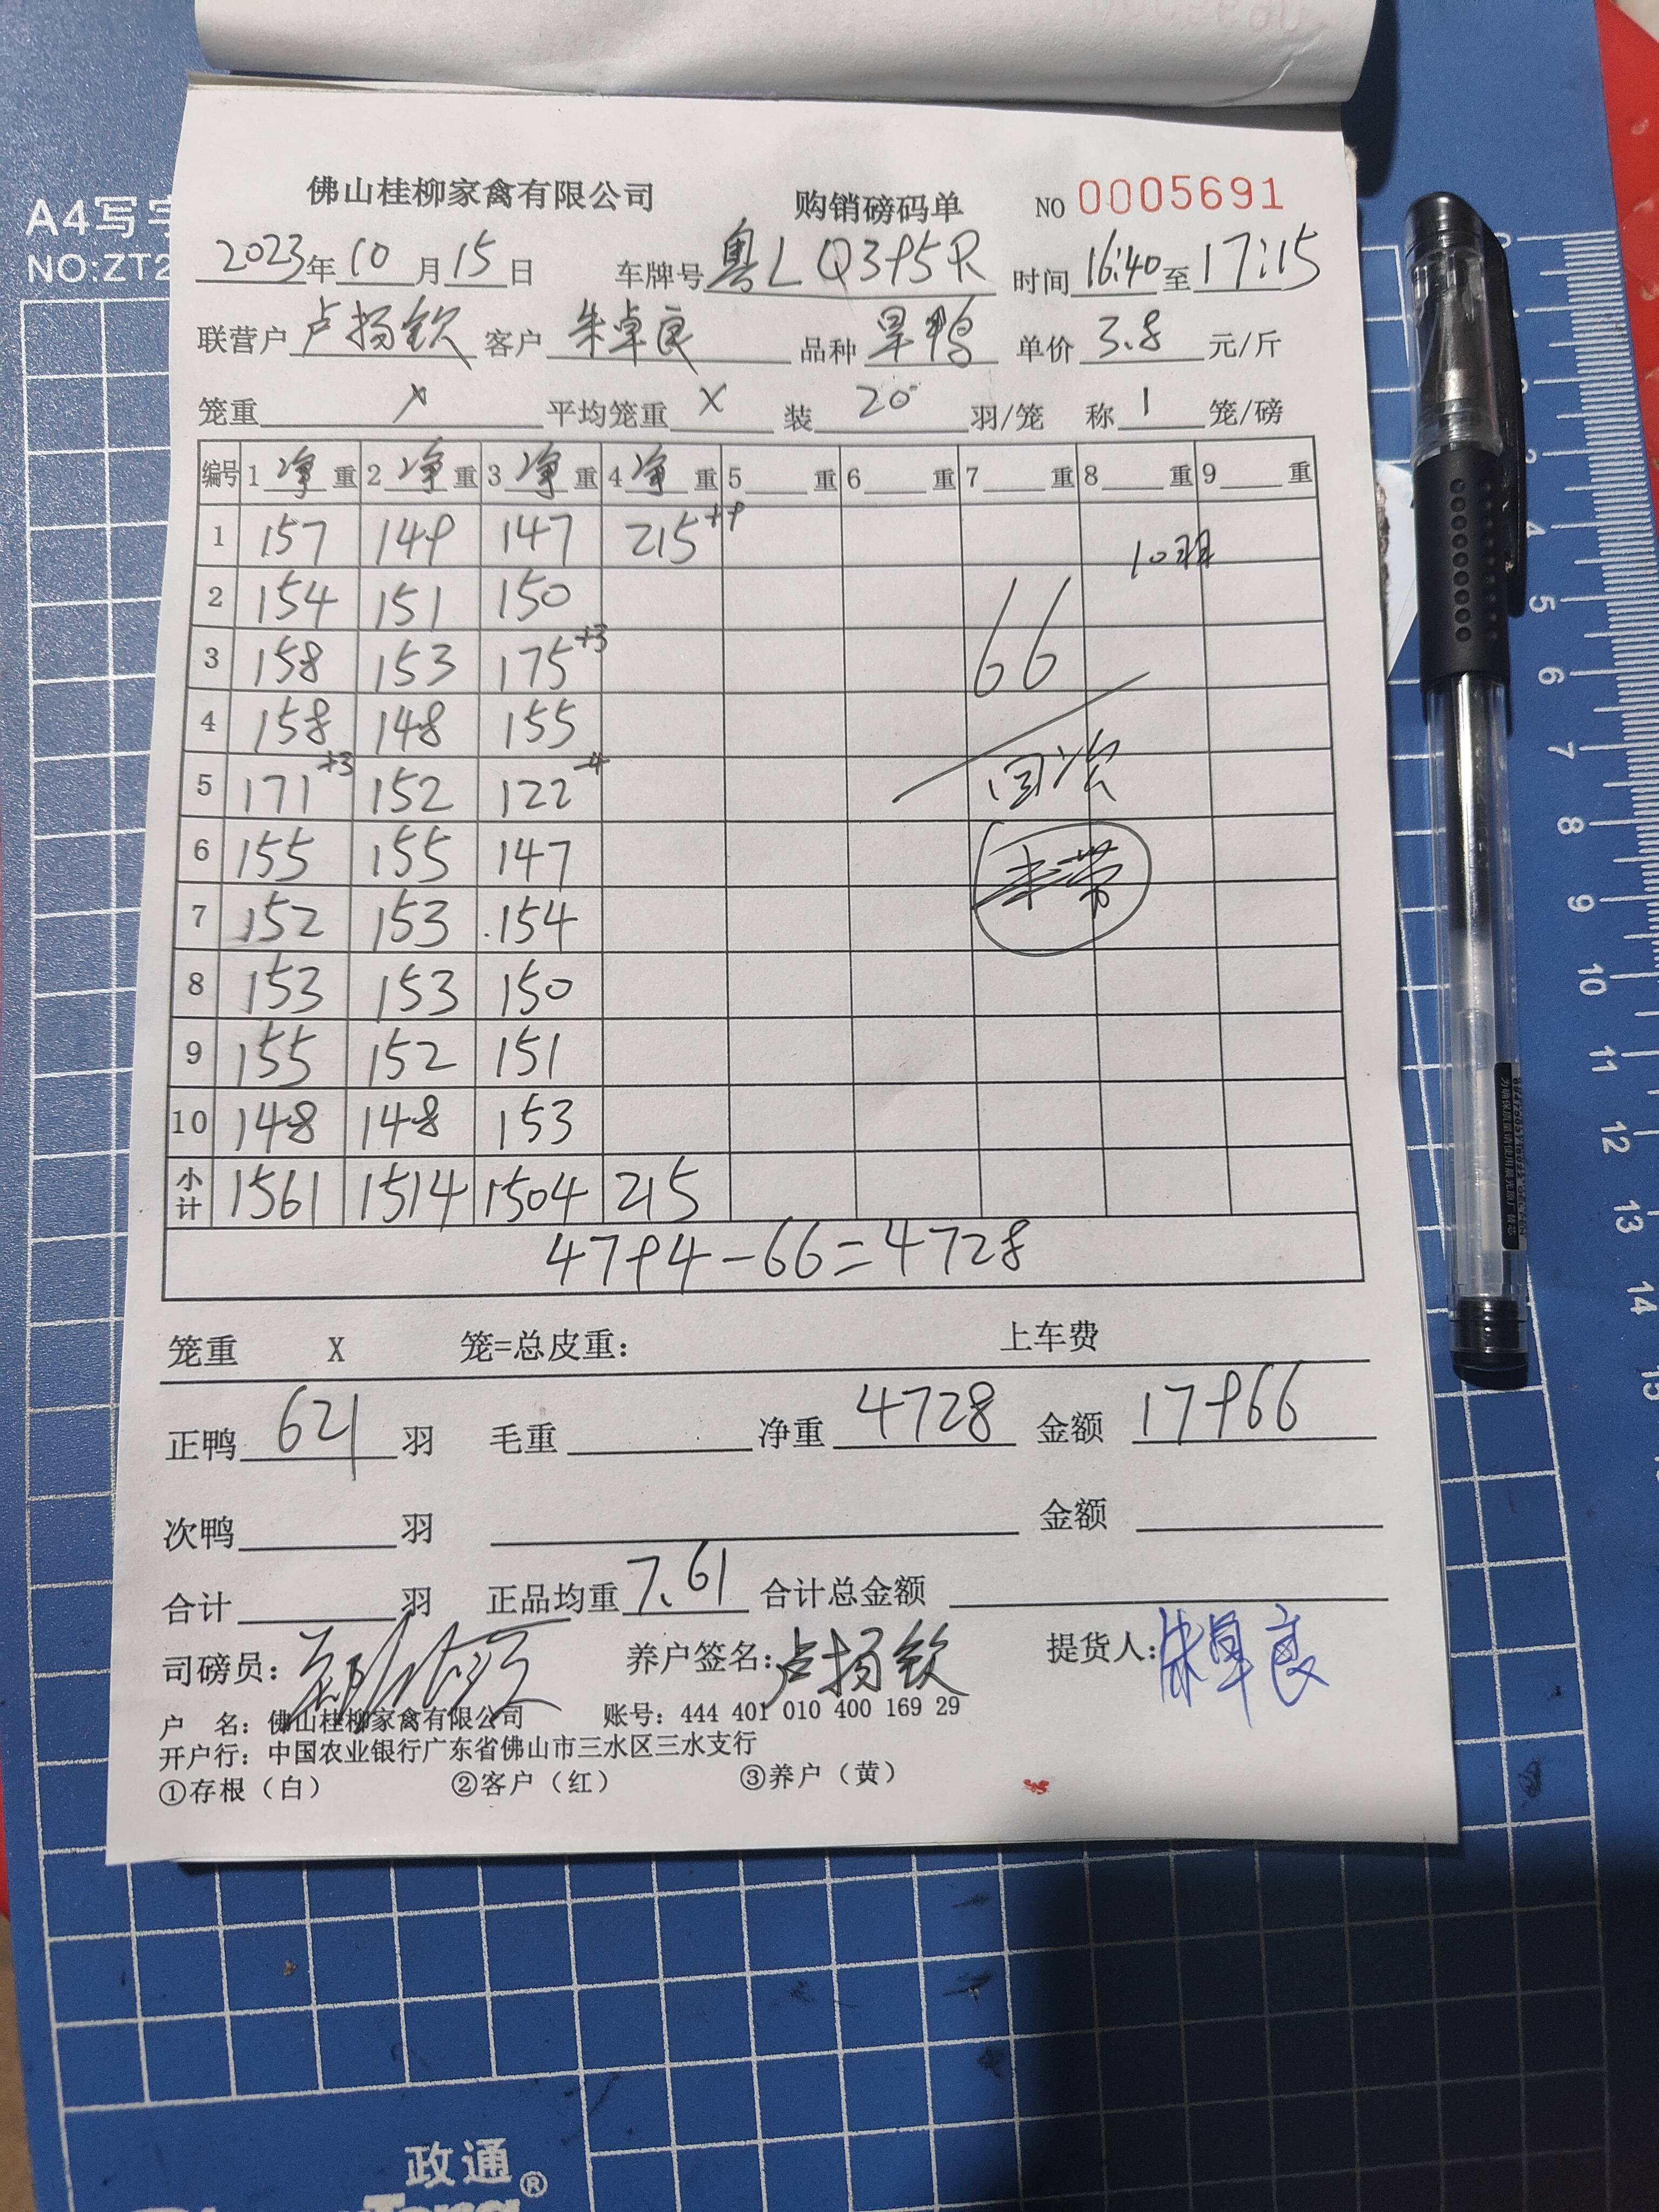 A4写字
NO:ZT2
佛山桂柳家禽有限公司 购销磅码单 NO 0005691
2023年10月15日 车牌号粤LQ395R 时间16:40至17:15
联营户卢扬钦 客户朱卓良 品种旱鸭 单价3.8元/斤
笼重 X 平均笼重 X 装 20 羽/笼 称 1 笼/磅
编号 1净重 2净重 3净重 4净重 5重 6重 7重 8重 9重
1 157 149 147 215+9 10羽
2 154 151 150
3 158 153 175+3 66
4 158 148 155
5 171+3 152 122-4 回次
6 155 155 147
7 152 153 154
8 153 153 150
9 155 152 151
10 148 148 153
小计 1561 1514 1504 215
4794-66=4728
笼重 X 笼=总皮重: 上车费
正鸭 621 羽 毛重 净重 4728 金额 17966
次鸭 羽 金额
合计 羽 正品均重 7.61 合计总金额
司磅员: 养户签名:卢扬钦 提货人:朱卓良
户 名: 佛山桂柳家禽有限公司 账号: 444 401 010 400 169 29
开户行: 中国农业银行广东省佛山市三水区三水支行
①存根（白） ②客户（红） ③养户（黄）
0 2 4 5 6 7 8 9 10 11 12 13 14 15
政通®